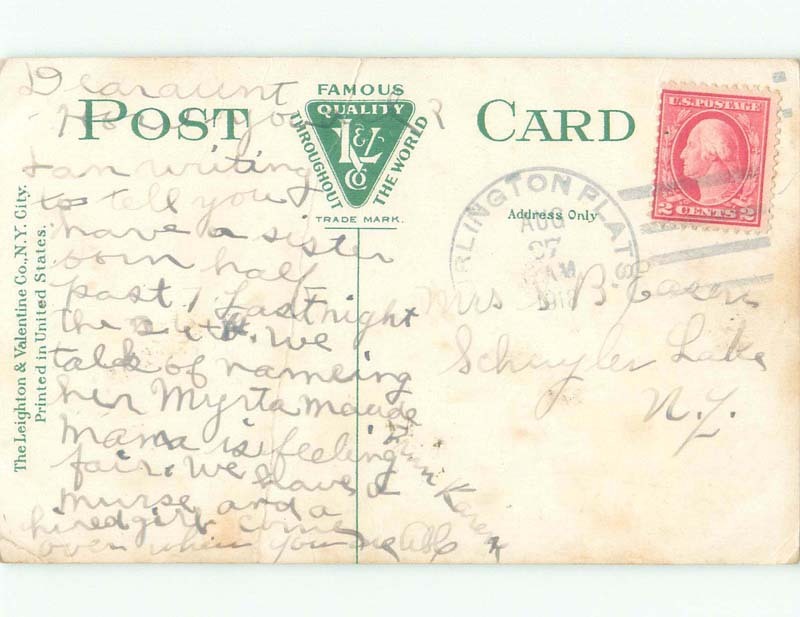 Dear aunt
POST CARD
FAMOUS
QUALITY
L&V
CO
THROUGHOUT THE WORLD
TRADE MARK.
How you
I an writing
to tell you I
have a sister
born half
past 7 last night
the We
talk of nameing
her Myrta maude
mama is feeling
fair. We have a
nurse and a
hired girl come
over when you
from Karen
The Leighton & Valentine Co., N.Y. City.
Printed in United States.
RLINGTON FLATS
AUG
27
AM
1918
Address Only
U.S. POSTAGE
2 CENTS 2
Mrs B
Schuyler Lake
N.Y.